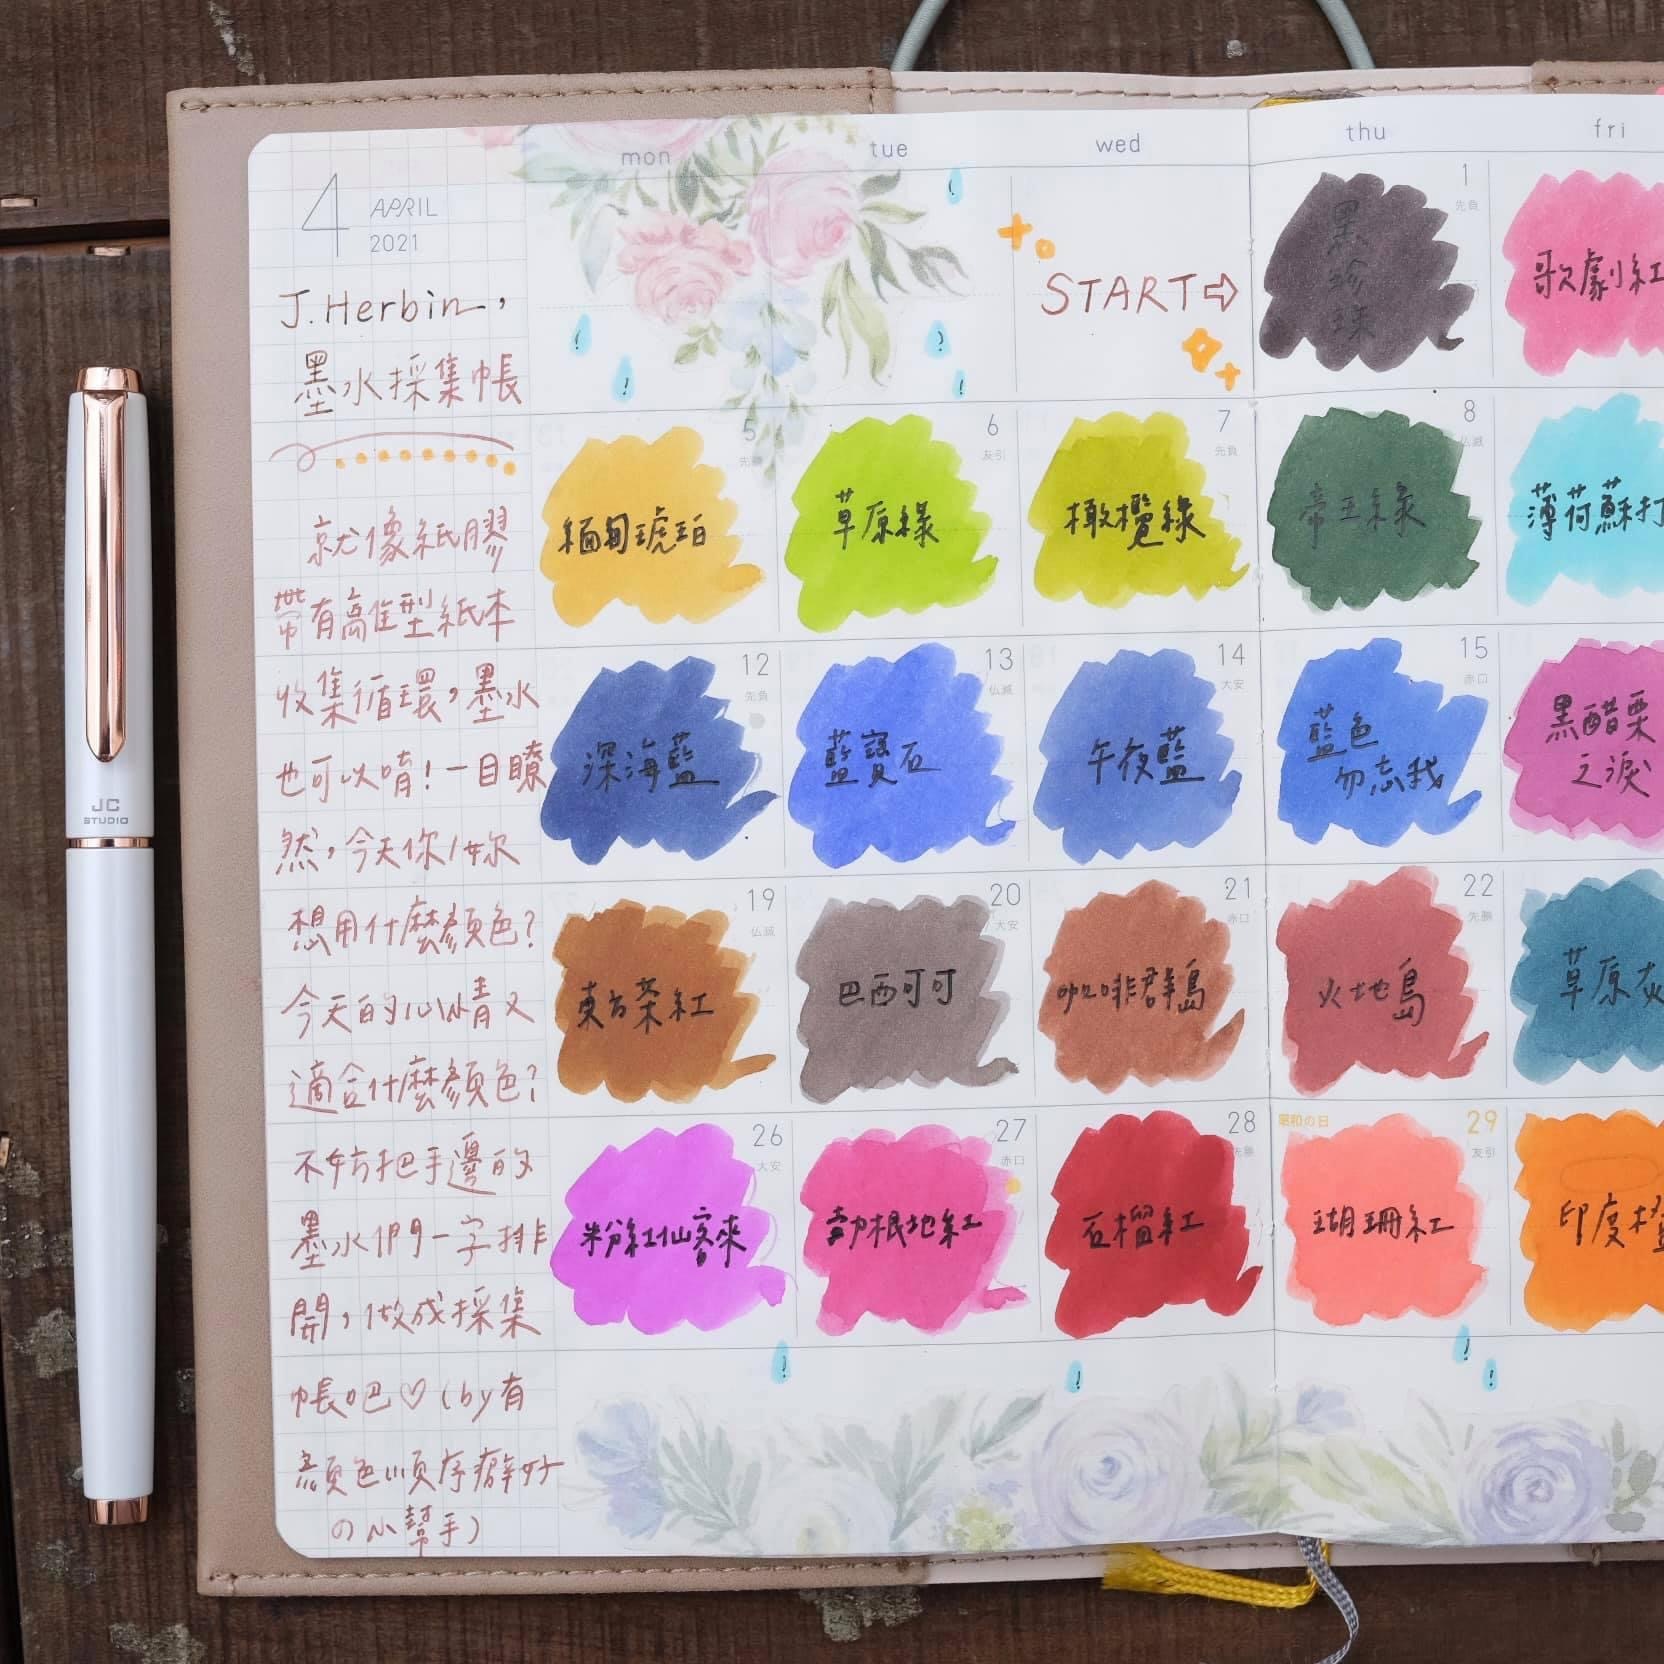 mon tue wed thu fri
4 APRIL
2021
J.Herbin,
墨水採集帳
就像紙膠
帶有離型紙本
收集循環,墨水
也可以唷!一目瞭
然,今天你/妳
想用什麼顏色?
今天的心情又
適合什麼顏色?
不妨把手邊的
墨水們一字排
開,做成採集
帳吧♡(by有
顏色順序癖好
の小幫手)
START⇨
1 先負
黑珍珠
歌劇紅
5 先勝
緬甸琥珀
6 友引
草原綠
7 先負
橄欖綠
8 仏滅
帝王綠
薄荷蘇打
12 先負
深海藍
13 仏滅
藍寶石
14 大安
午夜藍
15 赤口
藍色
勿忘我
黑醋栗
之淚
19 仏滅
東方茶紅
20 大安
巴西可可
21 赤口
咖啡群島
22 先勝
火地島
草原灰
26 大安
粉紅仙客來
27 赤口
勃根地紅
28 先勝
石榴紅
昭和の日
29 友引
珊瑚紅
印度橙
JC
STUDIO